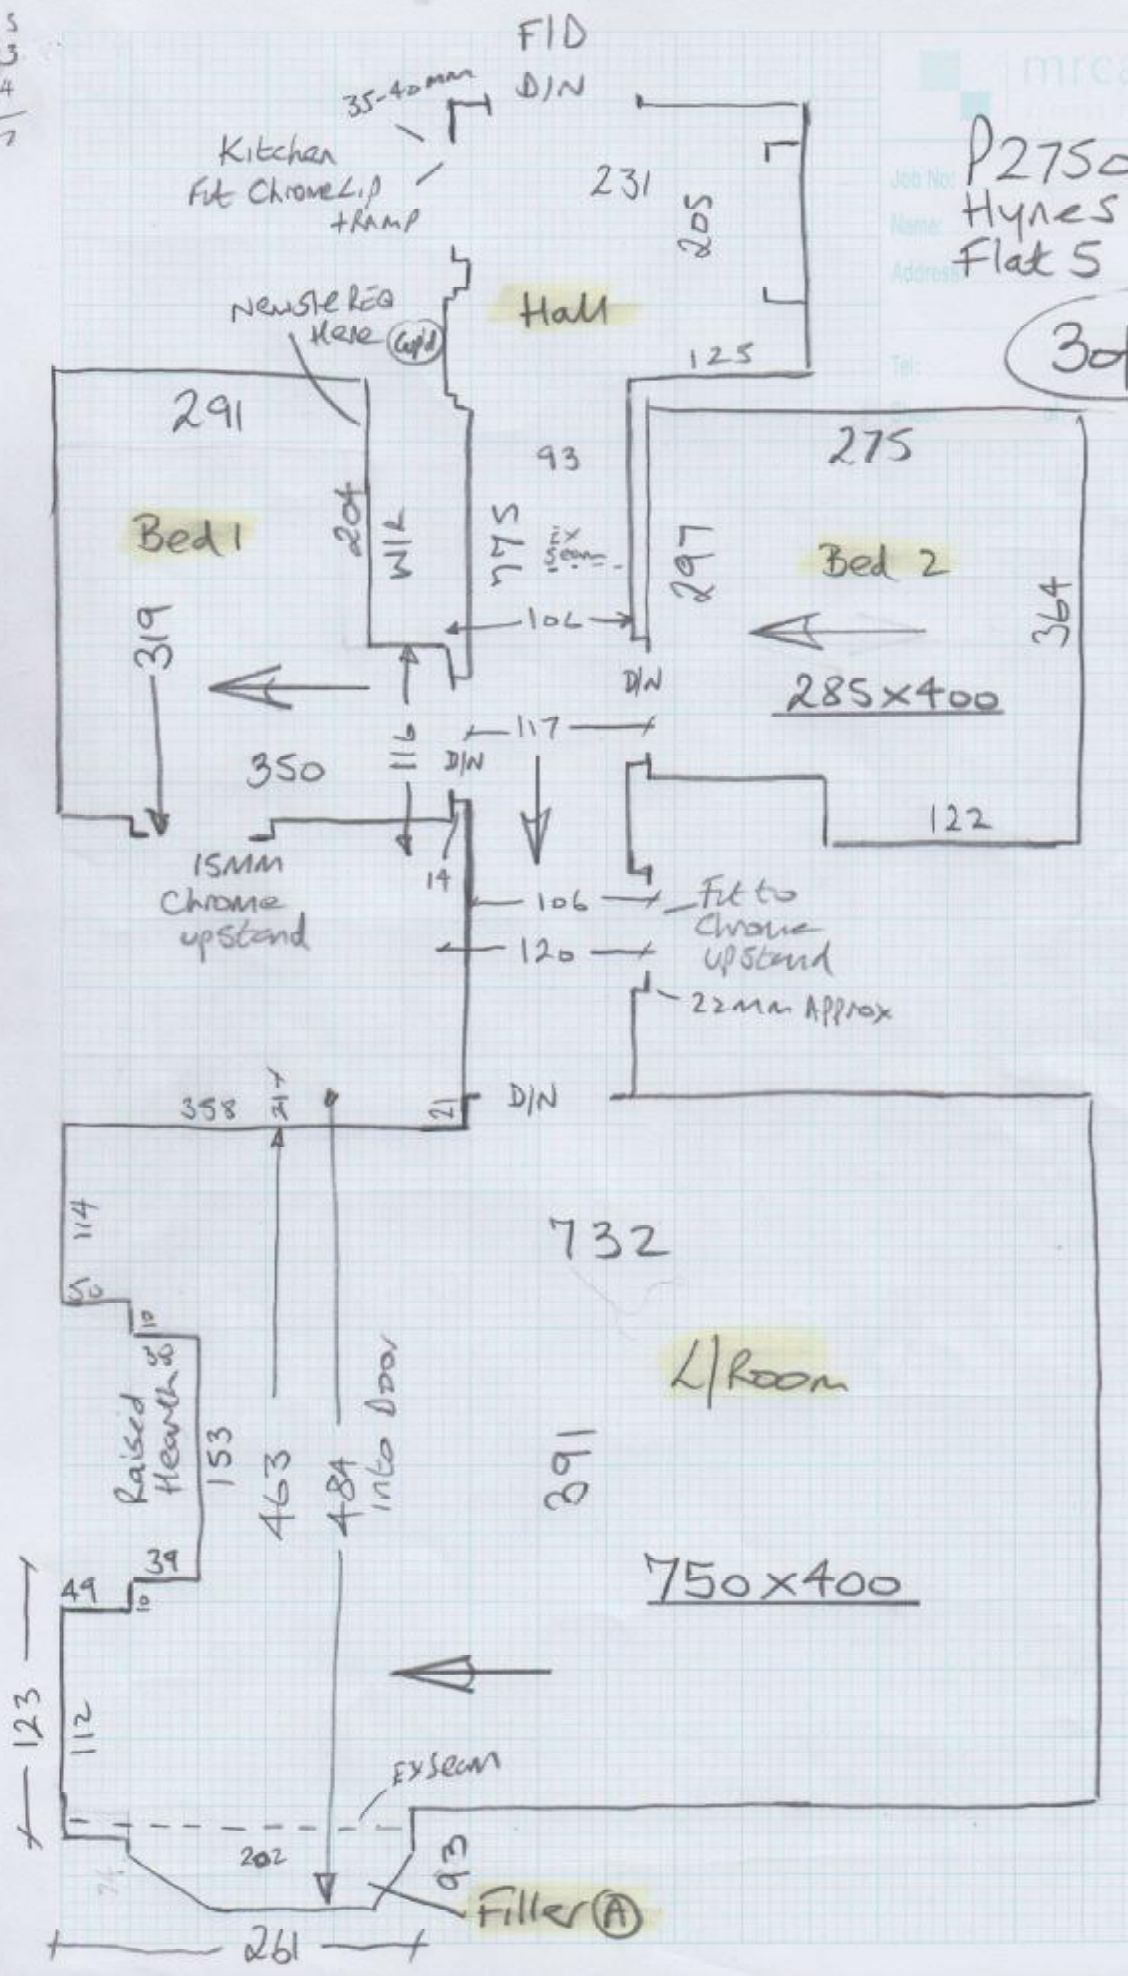 S
3
4
7
F/D
D/N
35-40mm
Kitchen
Fit Chrome Lip
+RAMP
231
205
mrca
Job No: P2750
Name: Hynes
Address: Flat 5
Tel:
3of
Hall
Here
Cup'd
125
291
93
275
Bed 1
204
W/R
775
Ex
Seam
297
Bed 2
364
319
106
D/N
285x400
117
116
D/N
350
122
15mm
Chrome
upstand
14
106
Fit to
Chrome
upstand
120
22mm Approx
358
21+
21
D/N
114
50
10
732
L/Room
Raised
Hearth
38
153
463
484
into Door
391
39
49
10
750x400
123
112
Ex Seam
202
93
Filler A
261